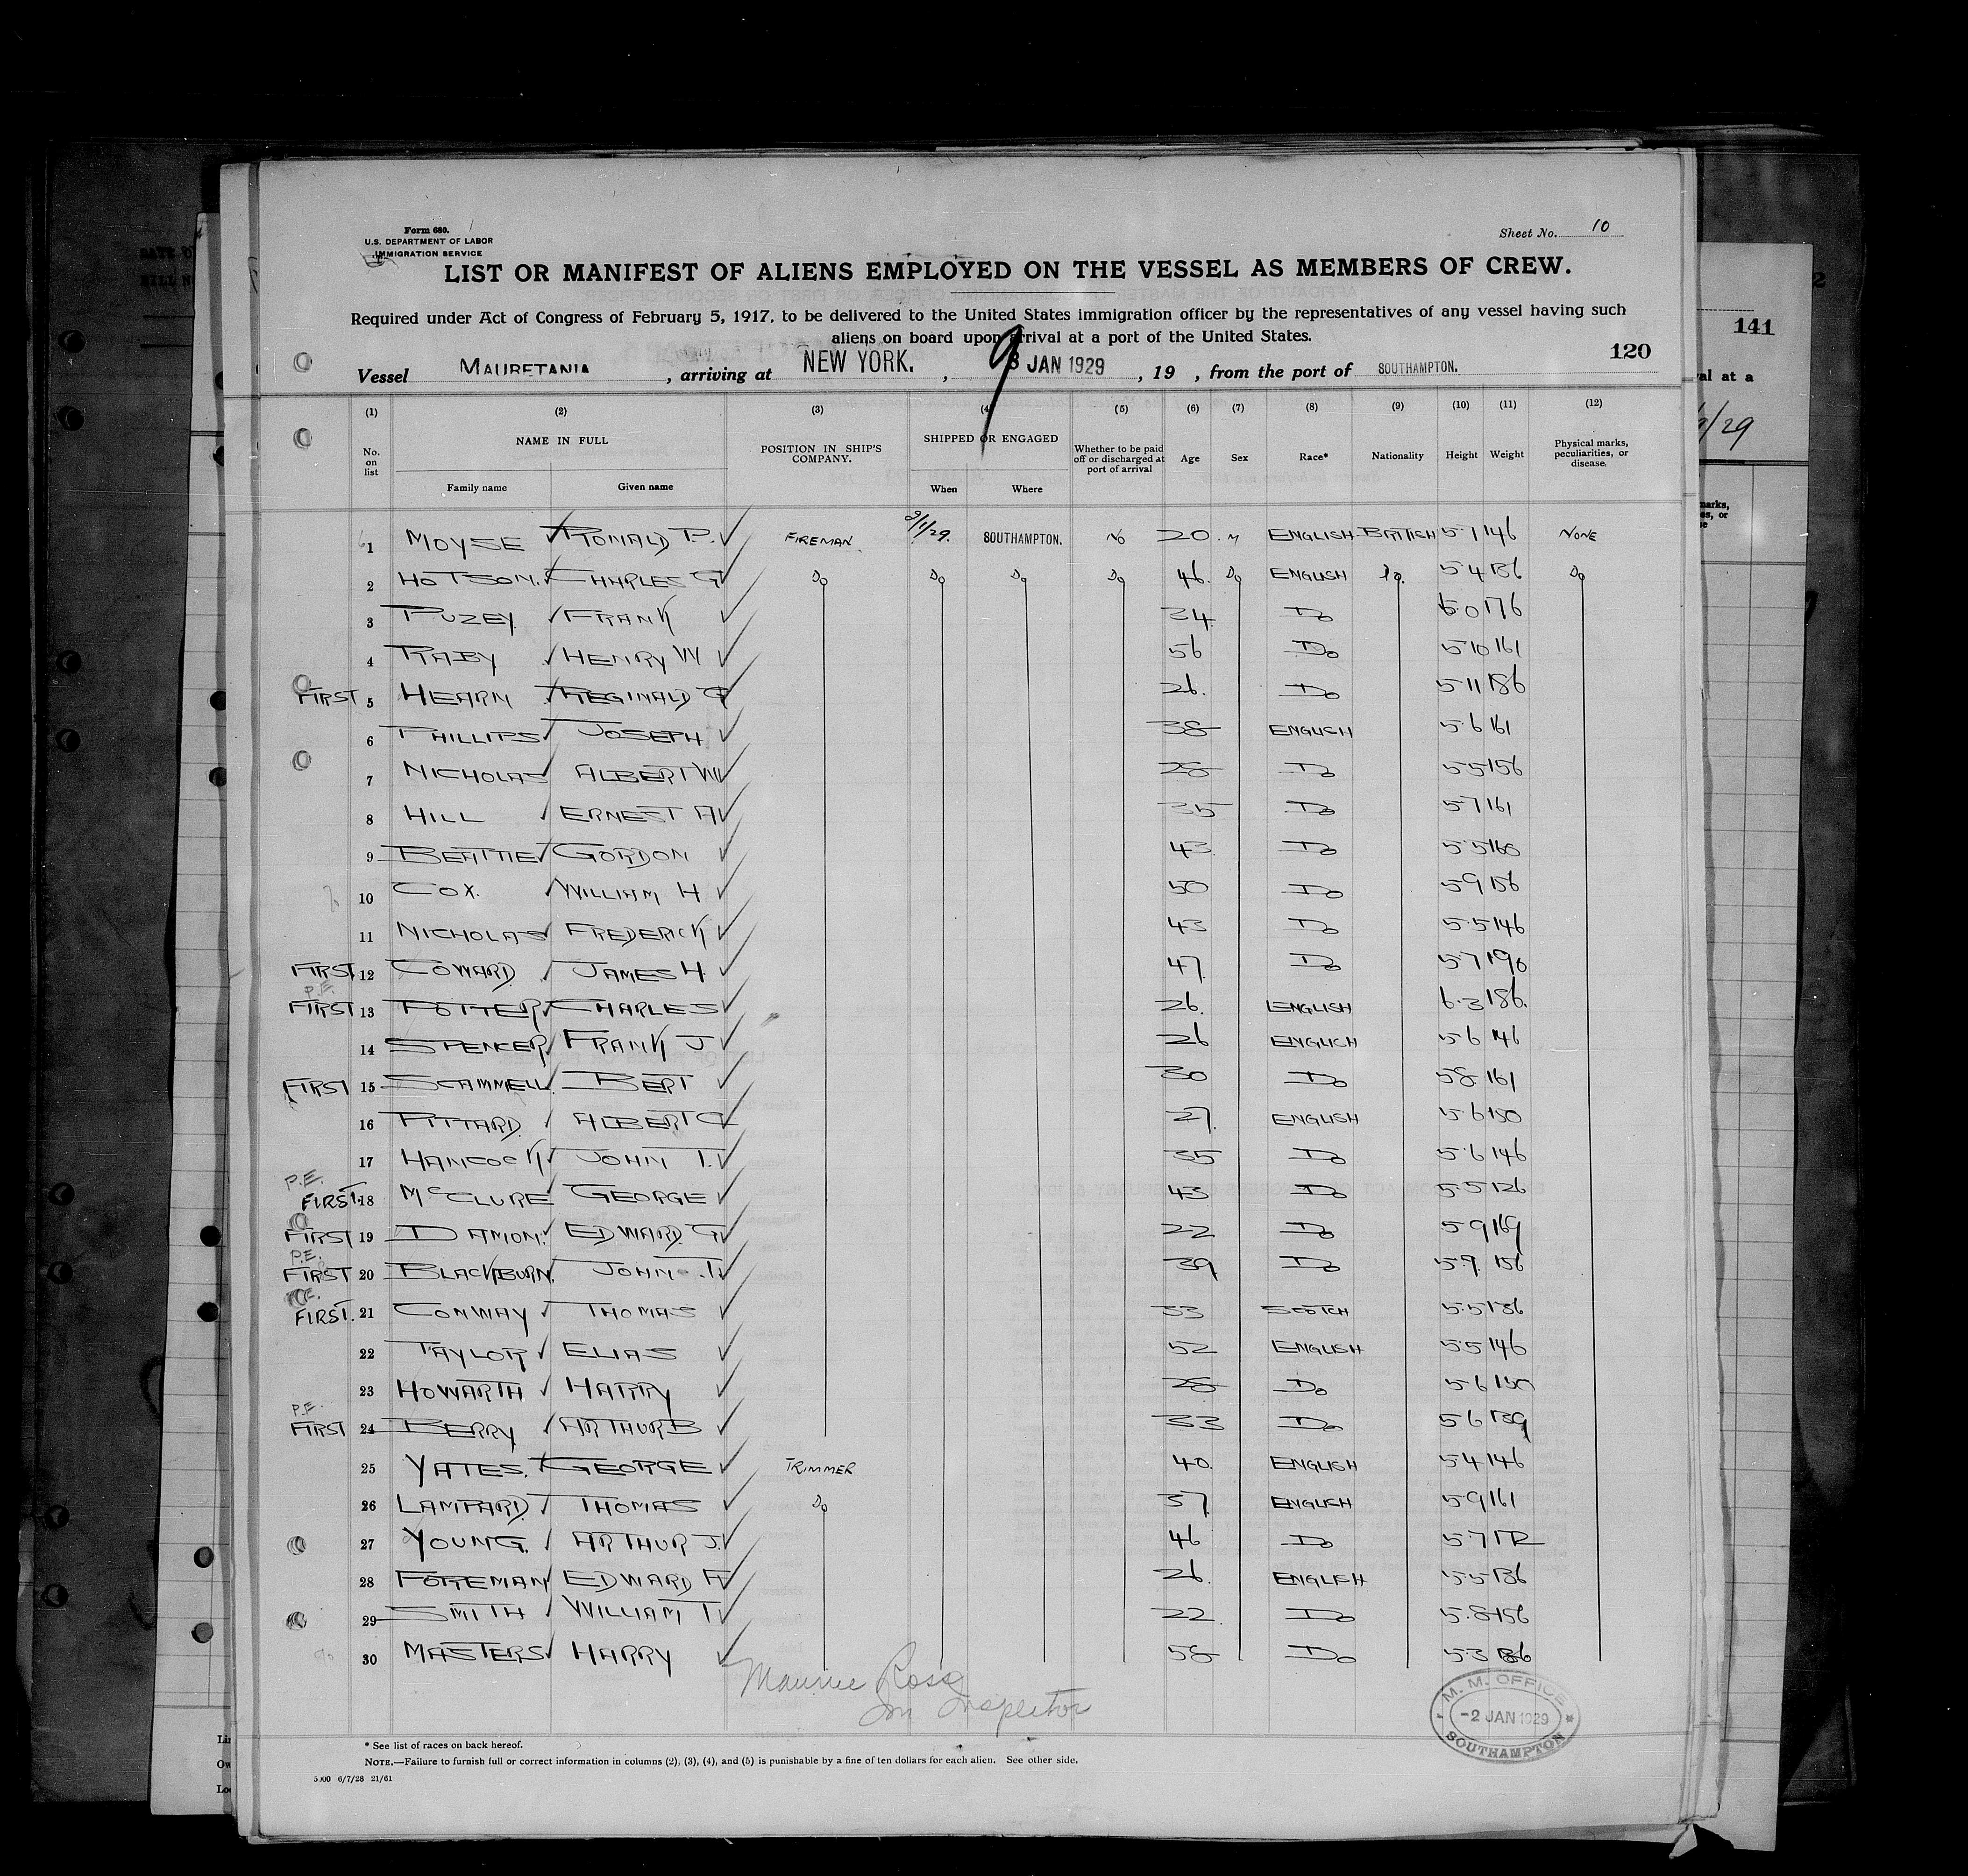 Form 680.
U.S. DEPARTMENT OF LABOR
IMMIGRATION SERVICE
Sheet No. 10
LIST OR MANIFEST OF ALIENS EMPLOYED ON THE VESSEL AS MEMBERS OF CREW.
Required under Act of Congress of February 5, 1917, to be delivered to the United States immigration officer by the representatives of any vessel having such
aliens on board upon arrival at a port of the United States.
120
141
Vessel MAURETANIA , arriving at NEW YORK. , 9 JAN 1929 , 19 , from the port of SOUTHAMPTON.
val at a
/29
(1) (2) (3) (4) (5) (6) (7) (8) (9) (10) (11) (12)
No. on list NAME IN FULL Family name Given name POSITION IN SHIP'S COMPANY. SHIPPED OR ENGAGED When Where Whether to be paid off or discharged at port of arrival Age Sex Race* Nationality Height Weight Physical marks, peculiarities, or disease.
1 MOYSE RONALD P. FIREMAN 3/1/29. SOUTHAMPTON. NO 20 M ENGLISH BRITISH 5·1 146 NONE
2 HOTSON. CHARLES G Do Do Do Do 46. Do ENGLISH Do. 5·4 136 Do
3 PUZEY. FRANK 34. Do 6·0 176
4 RABY HENRY W 56 Do 5·10 161
FIRST 5 HEARN REGINALD G 26. Do 5·11 186
6 PHILLIPS JOSEPH 38 ENGLISH 5·6 161
7 NICHOLAS ALBERT W 28 Do 5·5 156
8 HILL ERNEST A 35 Do 5·7 161
9 BEATTIE GORDON 43. Do 5·5 160
10 COX. WILLIAM H 50 Do 5·9 156
11 NICHOLAS FREDERICK 43 Do 5·5 146
FIRST 12 COWARD. JAMES H. 47. Do 5·7 190
P.E.
FIRST 13 POTTER CHARLES 26. ENGLISH 6·3 186.
14 SPENCER FRANK J 26 ENGLISH 5·6 146
FIRST 15 SCAMMELL BERT 30 Do 5·8 161
16 PITTARD. ALBERT C 27. ENGLISH 5·6 150
17 HANCOCK JOHN T. 35 Do 5·6 146
P.E.
FIRST. 18 McCLURE GEORGE 43 Do 5·5 126
FIRST 19 DAMON. EDWARD. G 22 Do 5·9 169
P.E.
FIRST 20 BLACKBURN. JOHN T. 39 Do 5·9 156
FIRST. 21 CONWAY THOMAS 33 SCOTCH 5·5 136
22 TAYLOR ELIAS 52 ENGLISH 5·5 146
23 HOWARTH HARRY 28 Do 5·6 150
P.E.
FIRST 24 BERRY ARTHUR B 33 Do 5·6 139
25 YATES. GEORGE TRIMMER 40. ENGLISH 5·4 146
26 LAMPARD. THOMAS Do 37 ENGLISH 5·9 161
27 YOUNG. ARTHUR J. 46 Do 5·7 172
28 FOREMAN EDWARD A 26. ENGLISH 5·5 136
29 SMITH WILLIAM T 22 Do 5·8 156
30 MASTERS HARRY 58 Do 5·3
Maurice Ross
Im Inspector
M. M. OFFICE
-2 JAN 1929
SOUTHAMPTON
* See list of races on back hereof.
NOTE.—Failure to furnish full or correct information in columns (2), (3), (4), and (5) is punishable by a fine of ten dollars for each alien. See other side.
6/7/28 21/61